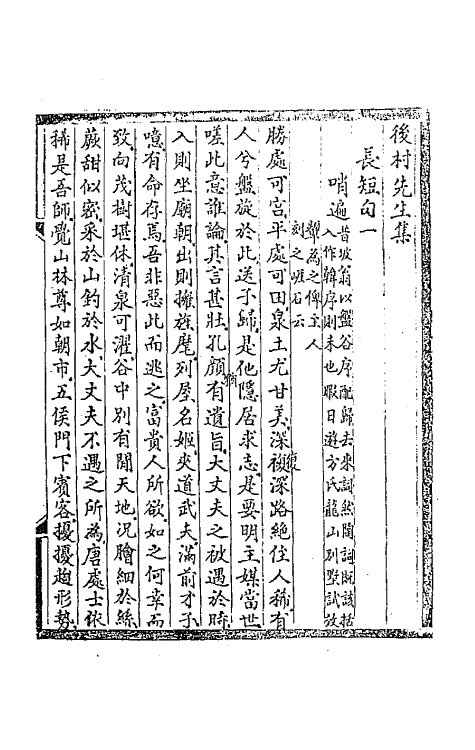 後村先生集
長短句一
哨遍昔坡翁以盤谷序配歸去來詞然陶詞既該括
入律韓序則未也暇日遊方氏龍山別墅試放
犟為之俾主人
刻之崖石云
勝處可宮平處可田泉土尤甘美深復深路絶住人稀有
人兮盤旋於此送子歸是他隱居求志是要明主媒當世
嗟此意誰論其言甚壯孔顔猶有遺旨大丈夫之被遇於時
入則坐廟朝出則擁旌麾列屋名姬夾道武夫滿前才子
噫有命存焉吾非惡此而逃之富貴人所欲如之何幸而
致向茂樹堪休清泉可濯谷中別有閒天地況膾細於絲
蕨甜似蜜采於山釣於水大丈夫不遇之所為唐處士依
稀是吾師覺山林尊如朝市五侯門下賓客擾擾趨形勢